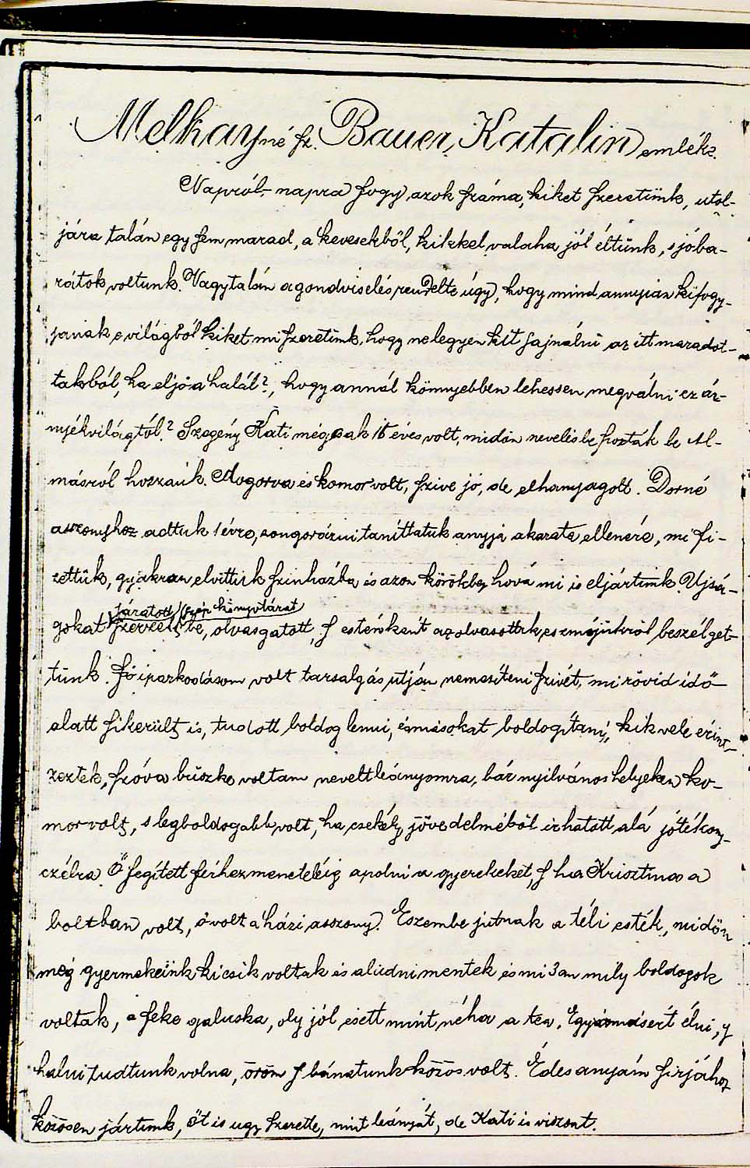 Melkayné sz. Bauer Katalin emléke.
Napról-napra fogy azok száma, kiket szeretünk, utol-
jára talán egy sem marad, a kevesekből, kikkel valaha jól éltünk, s jóba-
rátok voltunk. Vagy talán a gondviselés rendelte úgy, hogy mind annyian kifogy-
janak e világból kiket mi szeretünk, hogy ne legyen kit sajnálni az itt maradot-
takból, ha eljő a halál?, hogy annál könnyebben lehessen megválni ez ár-
nyékvilágtól? Szegény Kati még csak 16 éves volt, midőn nevelésbe hozták be Al-
másról hozzánk. Mogorva és komor volt, szive jó, de elhanyagolt. Dorné
asszonyhoz adtuk 1 évre, zongorázni taníttatuk anyja akarata ellenére, mi fi-
zettük, gyakran elvittük szinházba és azon körökbe, hová mi is eljártunk. Ujsá-
járatott könyvtárat
gokat be, olvasgatott, s esténként az olvasottak eszméjükről beszélget-
tünk. Fő iparkodásom volt tarsalgás utján nemesíteni szivét, mi rövid idő
alatt sikerült is, tudott boldog lenni, és másokat boldogítani, kik vele érint-
keztek, szóval büszke voltam nevelt leányomra, bár nyilvános helyeken ko-
mor volt, s legboldogabb volt, ha csekély jövedelméből irhatott alá jótékony
czélra. Ő segített férhezmeneteléig apolni a gyerekeket, s ha Krisztina a
boltban volt, ő volt a házi asszony. Eszembe jutnak a téli esték, midőn
még gyermekeink kicsik voltak és aludni mentek és mi 3an mily boldogok
voltak, a feke galuska, oly jól esett mint néha a tea. Egymásért élni, s
halni tudtunk volna, öröm s bánatunk közös volt. Édes anyám sirjához
közösen jártunk, őt is ugy szerette, mint leányát, de Kati is viszont.